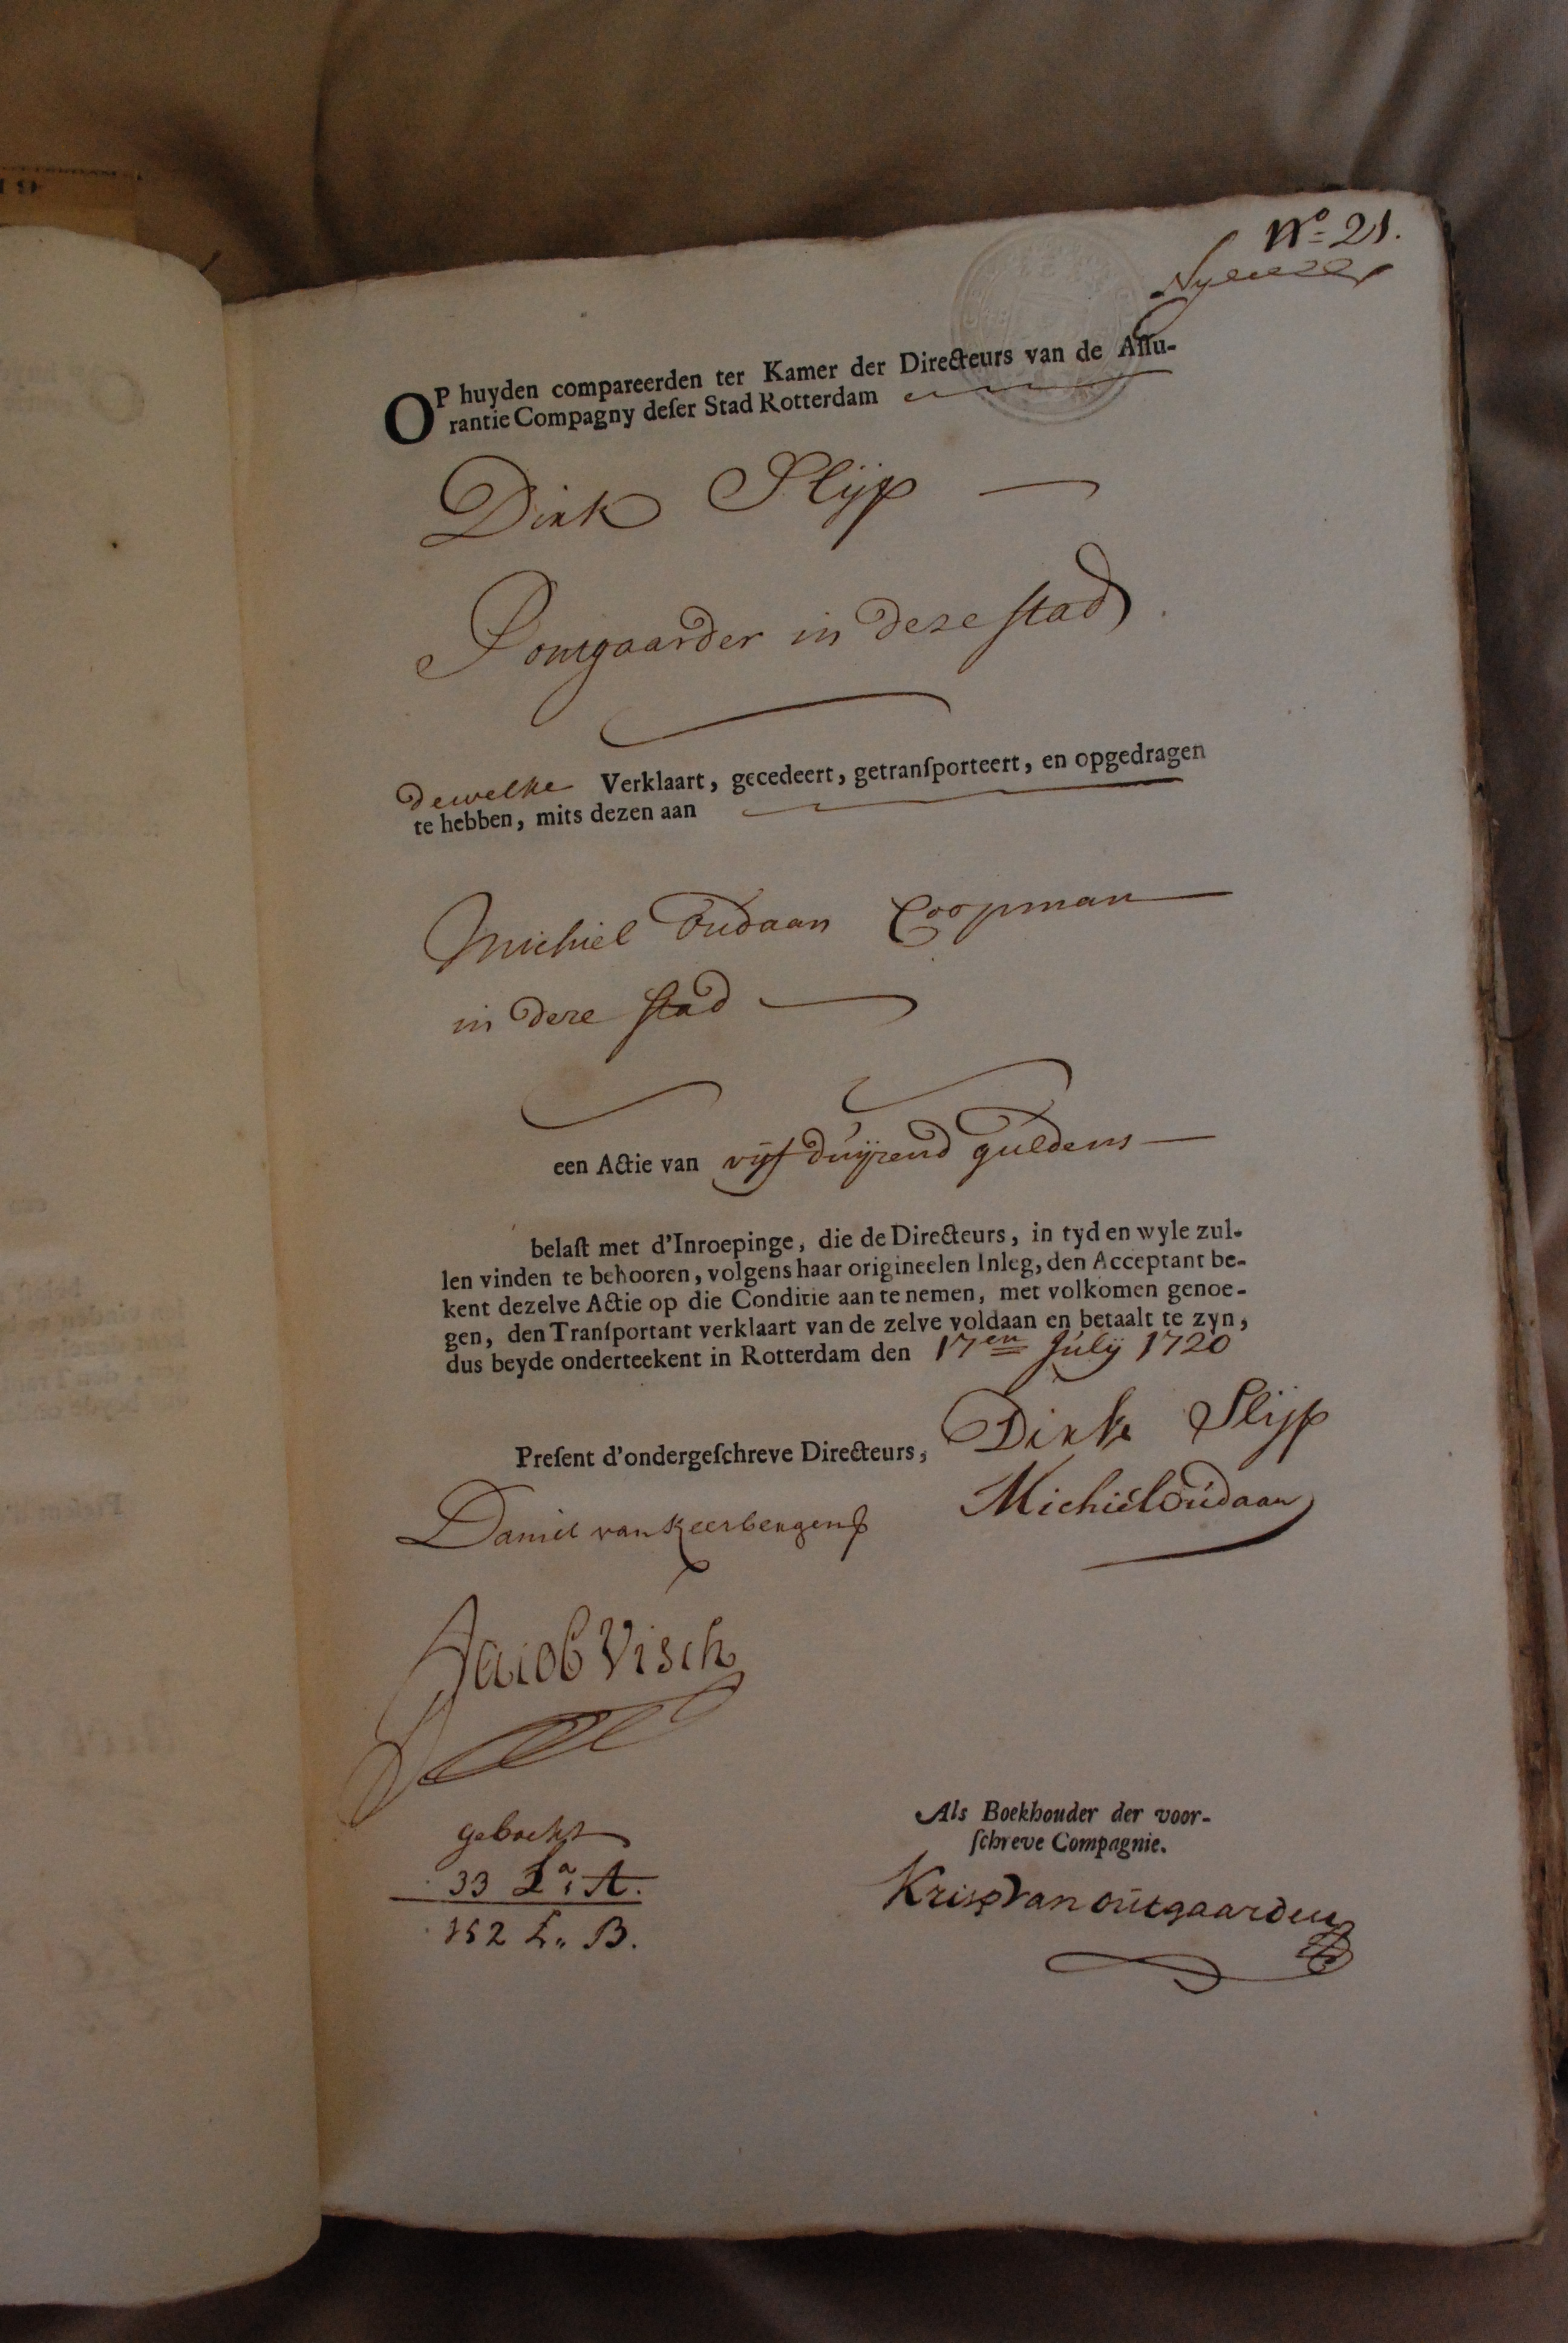 No= 21.
OP huyden compareerden ter Kamer der Directeurs van de Aſſu-
rantie Compagny deſer Stad Rotterdam
Dirk Slijp
in deze stad
dewelke Verklaart, gecedeert, getranſporteert, en opgedragen
te hebben, mits dezen aan
Michiel Oudaan Coopman
in deze stad
een Actie van vijf duijzend guldens
belaſt met d'Inroepinge, die de Directeurs, in tyd en wyle zul-
len vinden te behooren, volgens haar origineelen Inleg, den Acceptant be-
kent dezelve Actie op die Conditie aan te nemen, met volkomen genoe-
gen, den Tranſportant verklaart van de zelve voldaan en betaalt te zyn,
dus beyde onderteekent in Rotterdam den 17en Julij 1720
Dirk Slijp
Preſent d'ondergeſchreve Directeurs,
Michiel Oudaan
Daniel van Keerbergen
Jacob Visch
Als Boekhouder der voor-
ſchreve Compagnie.
geboekt
33 La A.
Kris van Outgaarden
152 L. B.